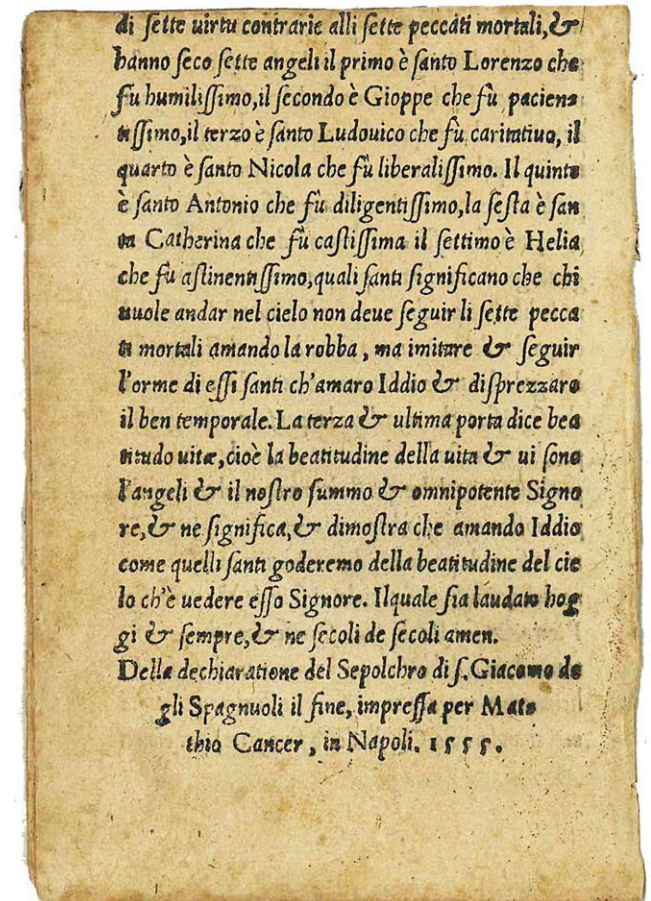 di sette uirtu contrarie alli sette peccati mortali, &
hanno seco sette angeli il primo è santo Lorenzo che
fu humilissimo, il secondo è Gioppe che fù pacien
tissimo, il terzo è santo Ludouico che fù caritatiuo, il
quarto è santo Nicola che fù liberalissimo. Il quinto
è santo Antonio che fù diligentissimo, la sesta è san
ta Catherina che fù castissima il settimo è Helia
che fu astinentissimo, quali santi significano che chi
uuole andar nel cielo non deue seguir li sette pecca
ti mortali amando la robba, ma imitare & seguir
l'orme di essi santi ch'amaro Iddio & disprezzaro
il ben temporale. La terza & ultima porta dice bea
titudo uitæ, cioè la beatitudine della uita & ui sono
l'angeli & il nostro summo & omnipotente Signo
re, & ne significa, & dimostra che amando Iddio
come quelli santi goderemo della beatitudine del cie
lo ch'è uedere esso Signore. Ilquale sia laudato hog
gi & sempre, & ne secoli de secoli amen.
Della dechiaratione del Sepolchro di s. Giacomo de
gli Spagnuoli il fine, impressa per Mat
thio Cancer, in Napoli. 1555.